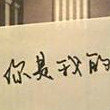 你是我的